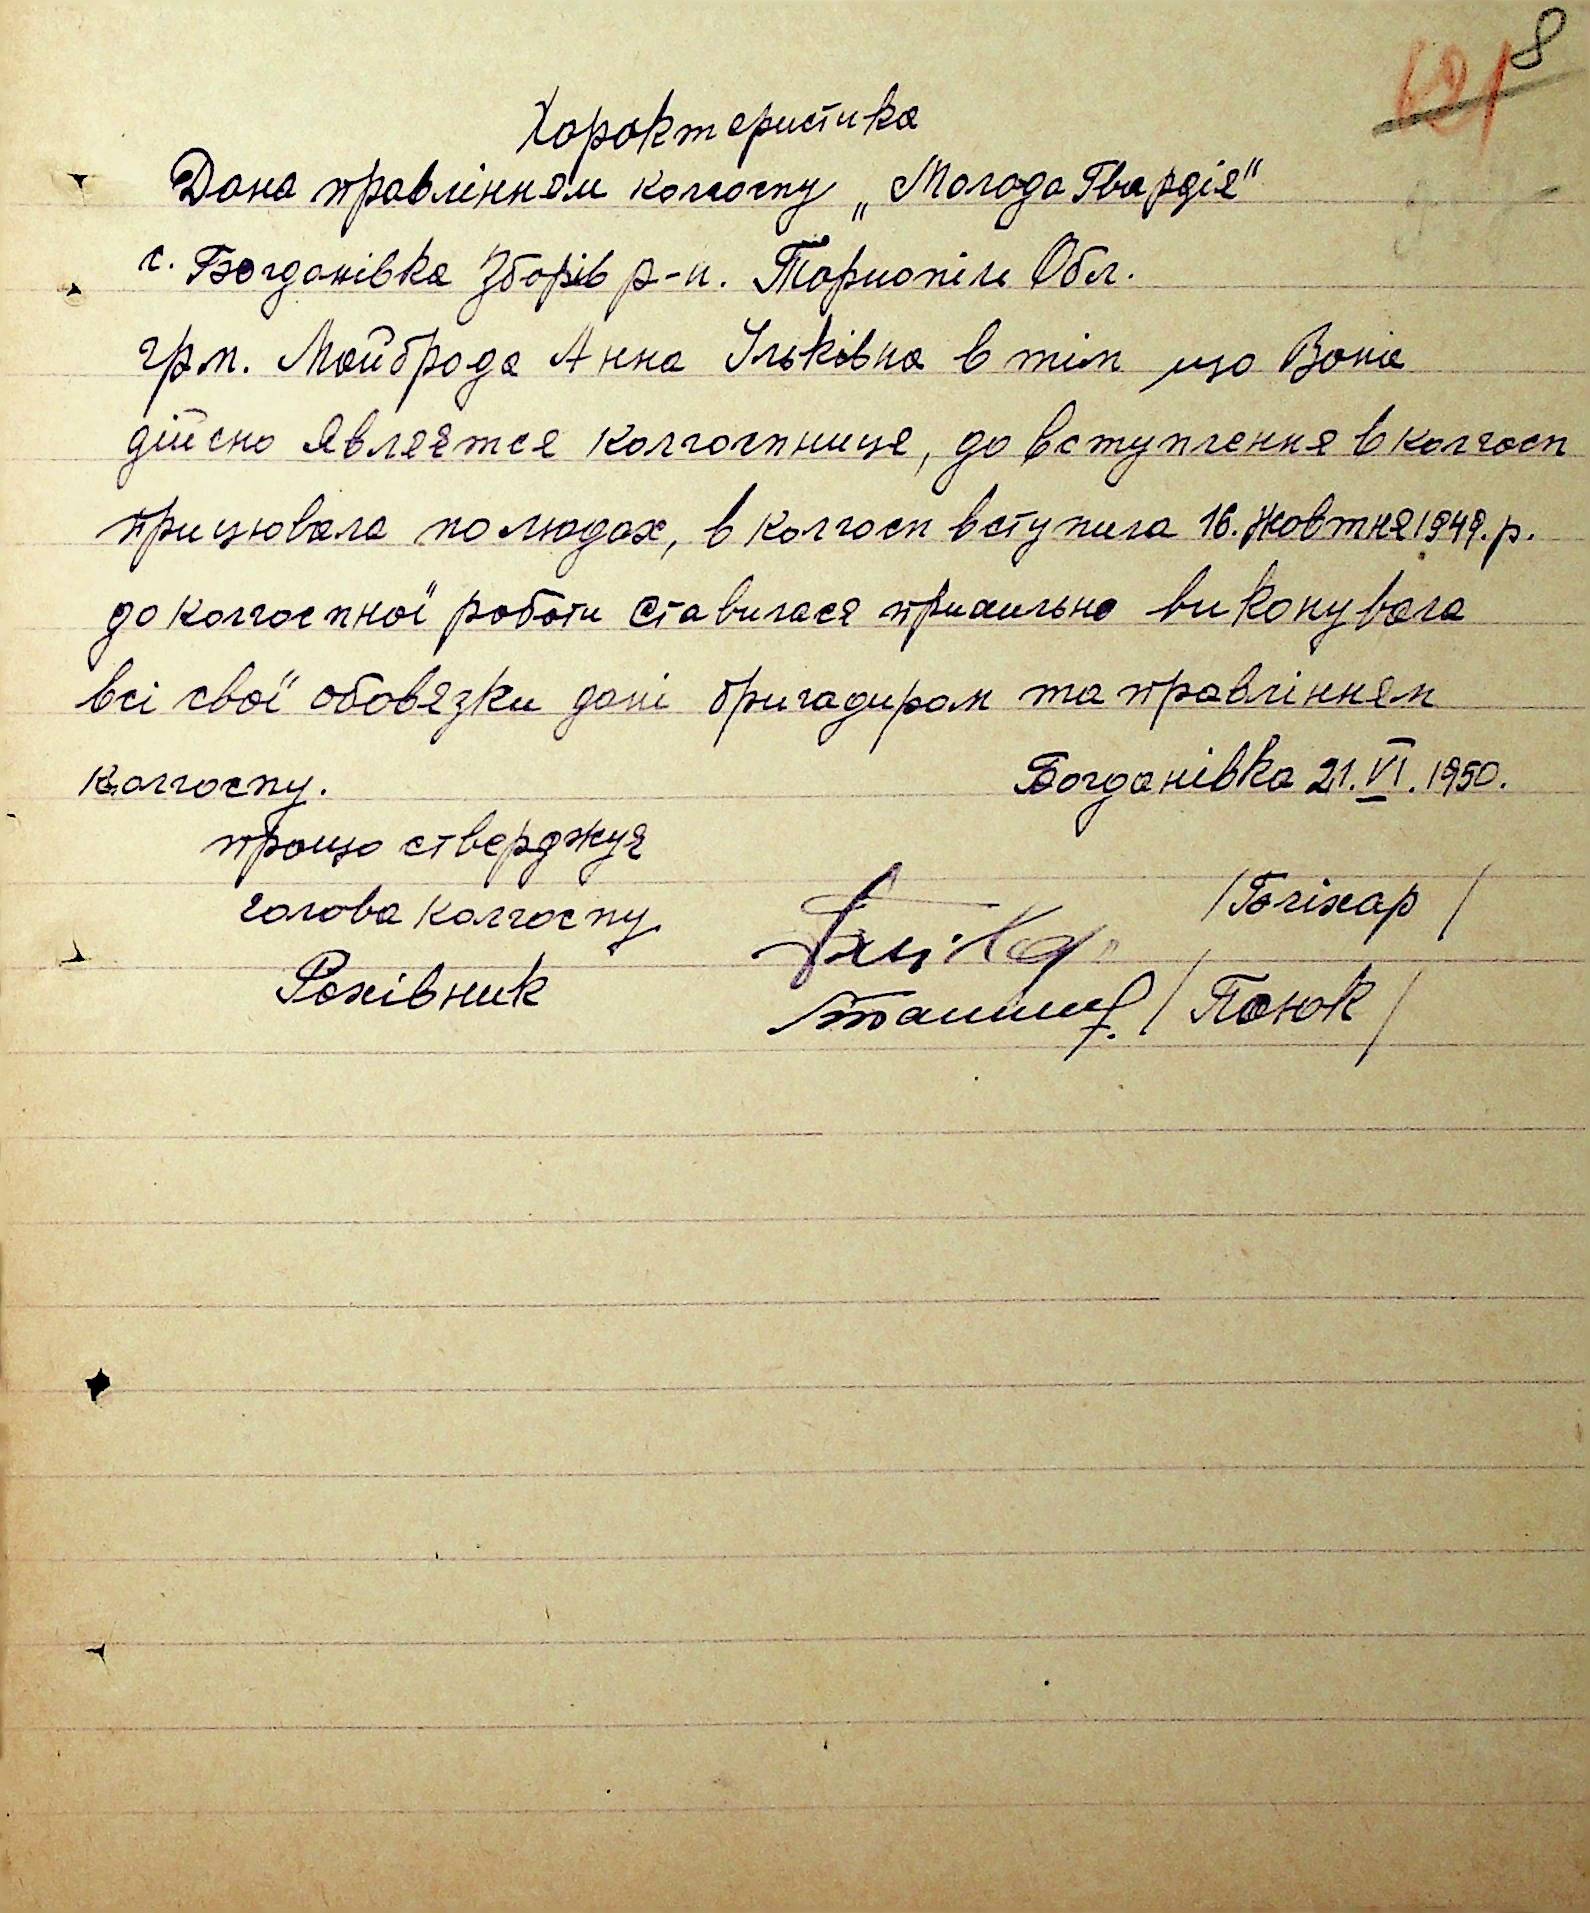 8
Характеристика
Дана правлінням колгоспу „Молода Гвардія"
с. Богданівка Зборів р-н. Тарнопіль Обл.
грм. Майброда Анна Ільківна в тім що Вона
дійсно являєтся колгоспниця, до вступлення в колгосп
працювала по людах, в колгосп вступила 16. Жовтня 1949. р.
до колгоспної роботи ставилася прихильно виконувала
всі свої обовязки дані бригадиром та правлінням
колгоспу. Богданівка 21. VI. 1950.
прощо стверджує
голова колгоспу /Бліхар/
Рахівник /Панюк/